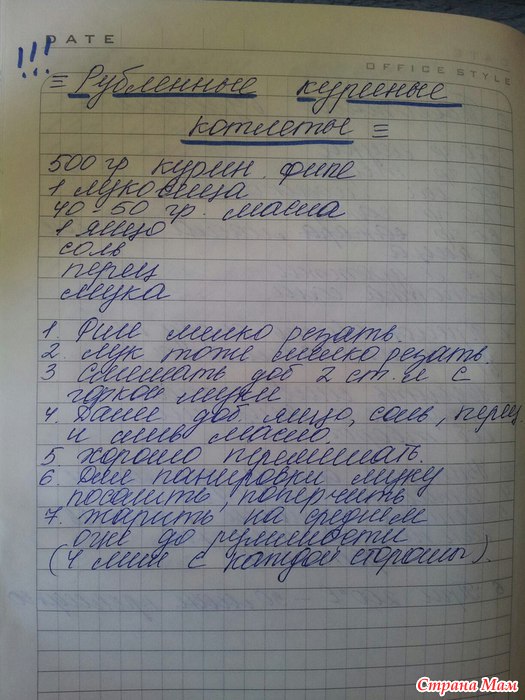 !!!
DATE
OFFICE STYLE
≡ Рубленные куриные
котлеты ≡
500 гр курин. филе
1 луковица
40-50 гр. масла
1 яйцо
соль
перец
мука
1. Филе мелко резать.
2. Лук тоже мелко резать.
3 Смешать доб 2 ст.л с
горкой муки
4. Далее доб яйцо, соль, перец
и слив масло.
5. Хорошо перемешать.
6. Для панировки муку
посолить, поперчить
7. Жарить на среднем
огне до румяности
(4 мин с каждой стороны).
Страна Мам